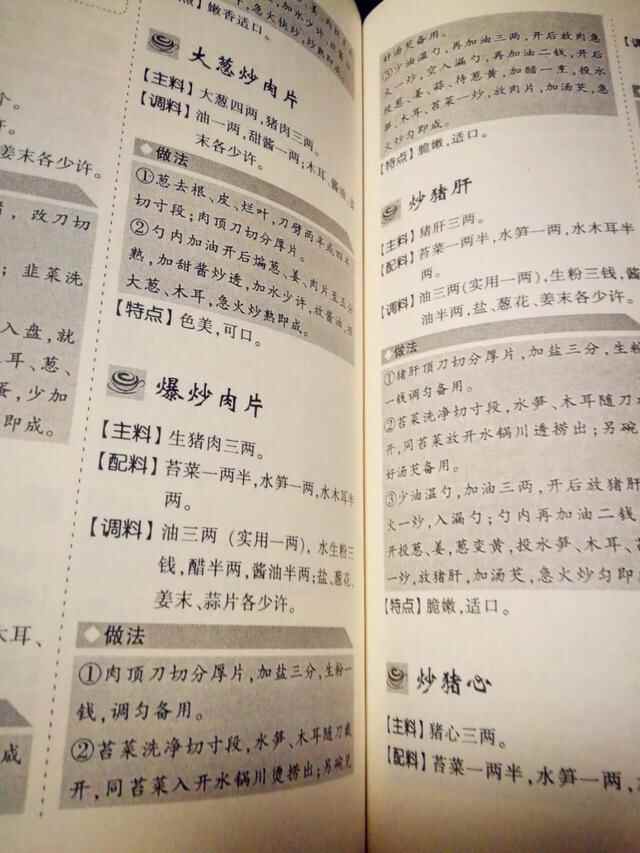 特点】嫩香适口。
大葱炒肉片
【主料】大葱四两,猪肉三两。
【调料】油一两,甜酱一两;木耳、酱油、
末各少许。
做法
①葱去根、皮、烂叶,刀劈两半或四
切寸段;肉顶刀切分厚片。
②勺内加油开后煸葱、姜、肉片至五分
熟,加甜酱炒透,加水少许,放酱油,
大葱、木耳,急火炒熟即成。
【特点】色美,可口。
爆炒肉片
【主料】生猪肉三两。
【配料】苔菜一两半,水笋一两,水木耳半
两。
【调料】油三两(实用一两),水生粉三
钱,醋半两,酱油半两;盐、葱花、
姜末、蒜片各少许。
做法
①肉顶刀切分厚片,加盐三分,生粉一
钱,调匀备用。
②苔菜洗净切寸段,水笋、木耳随刀截
开,同苔菜入开水锅川烫捞出;另碗兑
个。
姜末各少许。
改刀切
韭菜洗
入盘,就
耳、葱、
蛋,少加
即成。
木耳、
成
好汤芡备用。
③少油温勺,再加油三两,开后放肉急
火一炒,空入漏勺,再加油二钱,开后
投葱、姜、蒜,待葱黄,加醋一烹,投水
笋、木耳、苔菜一炒,放肉片,加汤芡,急
火炒匀即成。
【特点】脆嫩,适口。
炒猪肝
【主料】猪肝三两。
【配料】苔菜一两半,水笋一两,水木耳半
两。
【调料】油三两(实用一两),生粉三钱,酱
油半两,盐、葱花、姜末各少许。
做法
①猪肝顶刀切分厚片,加盐三分,生粉
一钱调匀备用。
②苔菜洗净切寸段,水笋、木耳随刀
开,同苔菜放开水锅川透捞出;另碗
好汤芡备用。
③少油温勺,加油三两,开后放猪肝
火一炒,入漏勺;勺内再加油二钱,
开投葱、姜,葱变黄,投水笋、木耳、苔
一炒,放猪肝,加汤芡,急火炒匀即
【特点】脆嫩,适口。
炒猪心
【主料】猪心三两。
【配料】苔菜一两半,水笋一两,